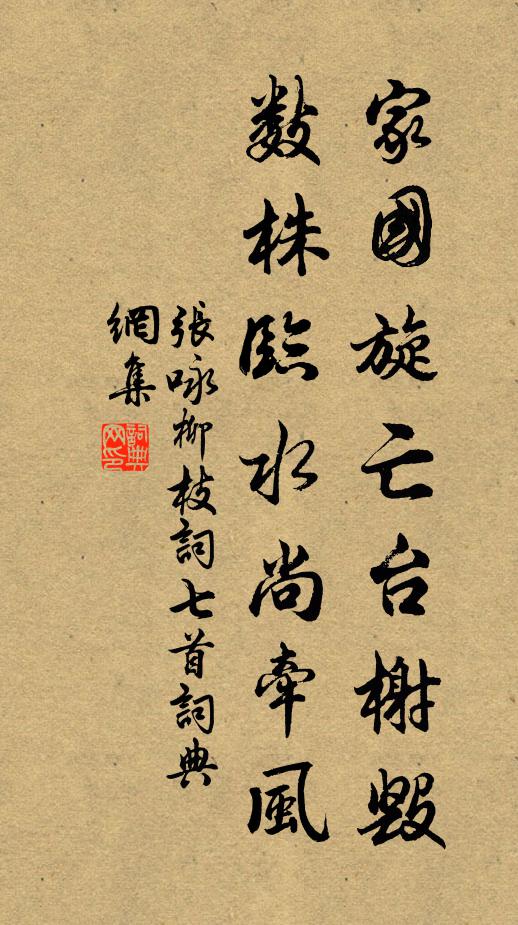 家國旋亡台榭毀
數株臨水尚牽風
張咏柳枝詞七首詞典
網集
詞典
网印